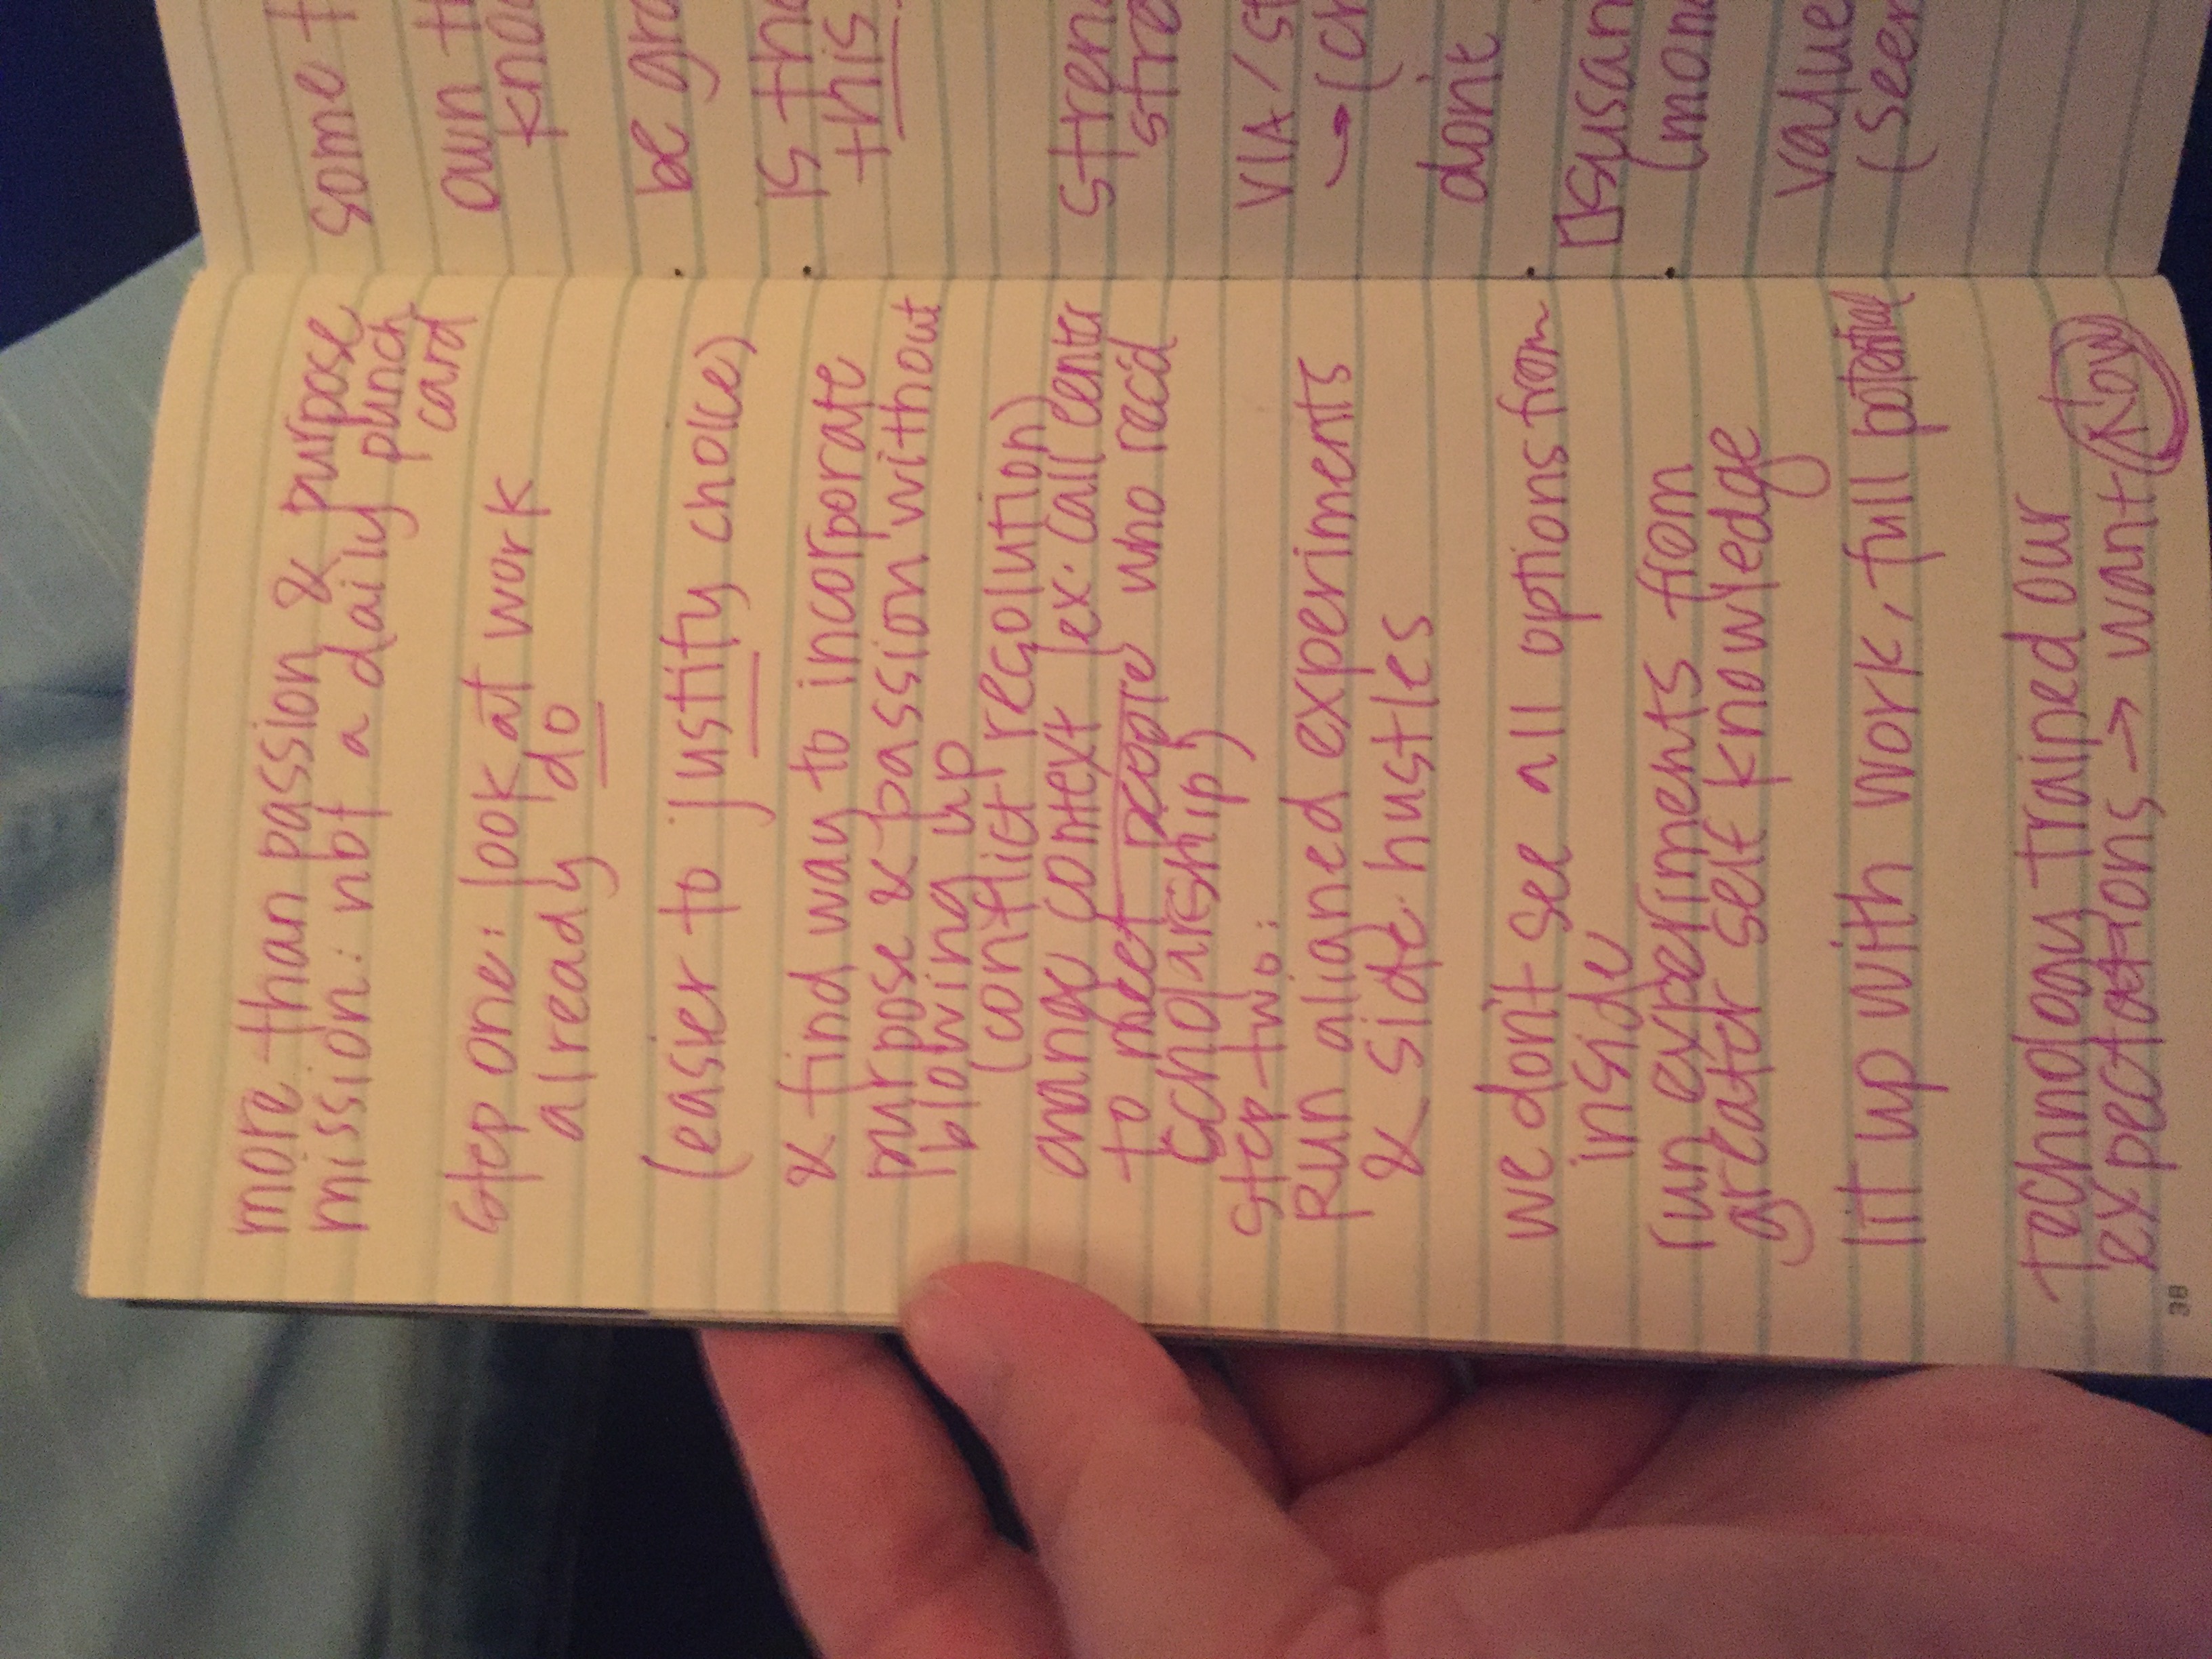 more than passion & purpose
mission: not a daily punch
card
step one: look at work
already do
(easier to justify choice)
& find way to incorporate
purpose & passion without
blowing up
(conflict resolution)
change context (ex. call center
to meet people who rec'd
scholarship)
step two:
Run aligned experiments
& side hustles
we don't see all options from
inside
run experiments from
greater self knowledge
lit up with work, full potential
technology trained our
expectations → want Now
38
some t
own th
knoc
be gra
is tha
this
stren
stre
VIA/st
→(ch
don't
susan
(mon
value
(seen